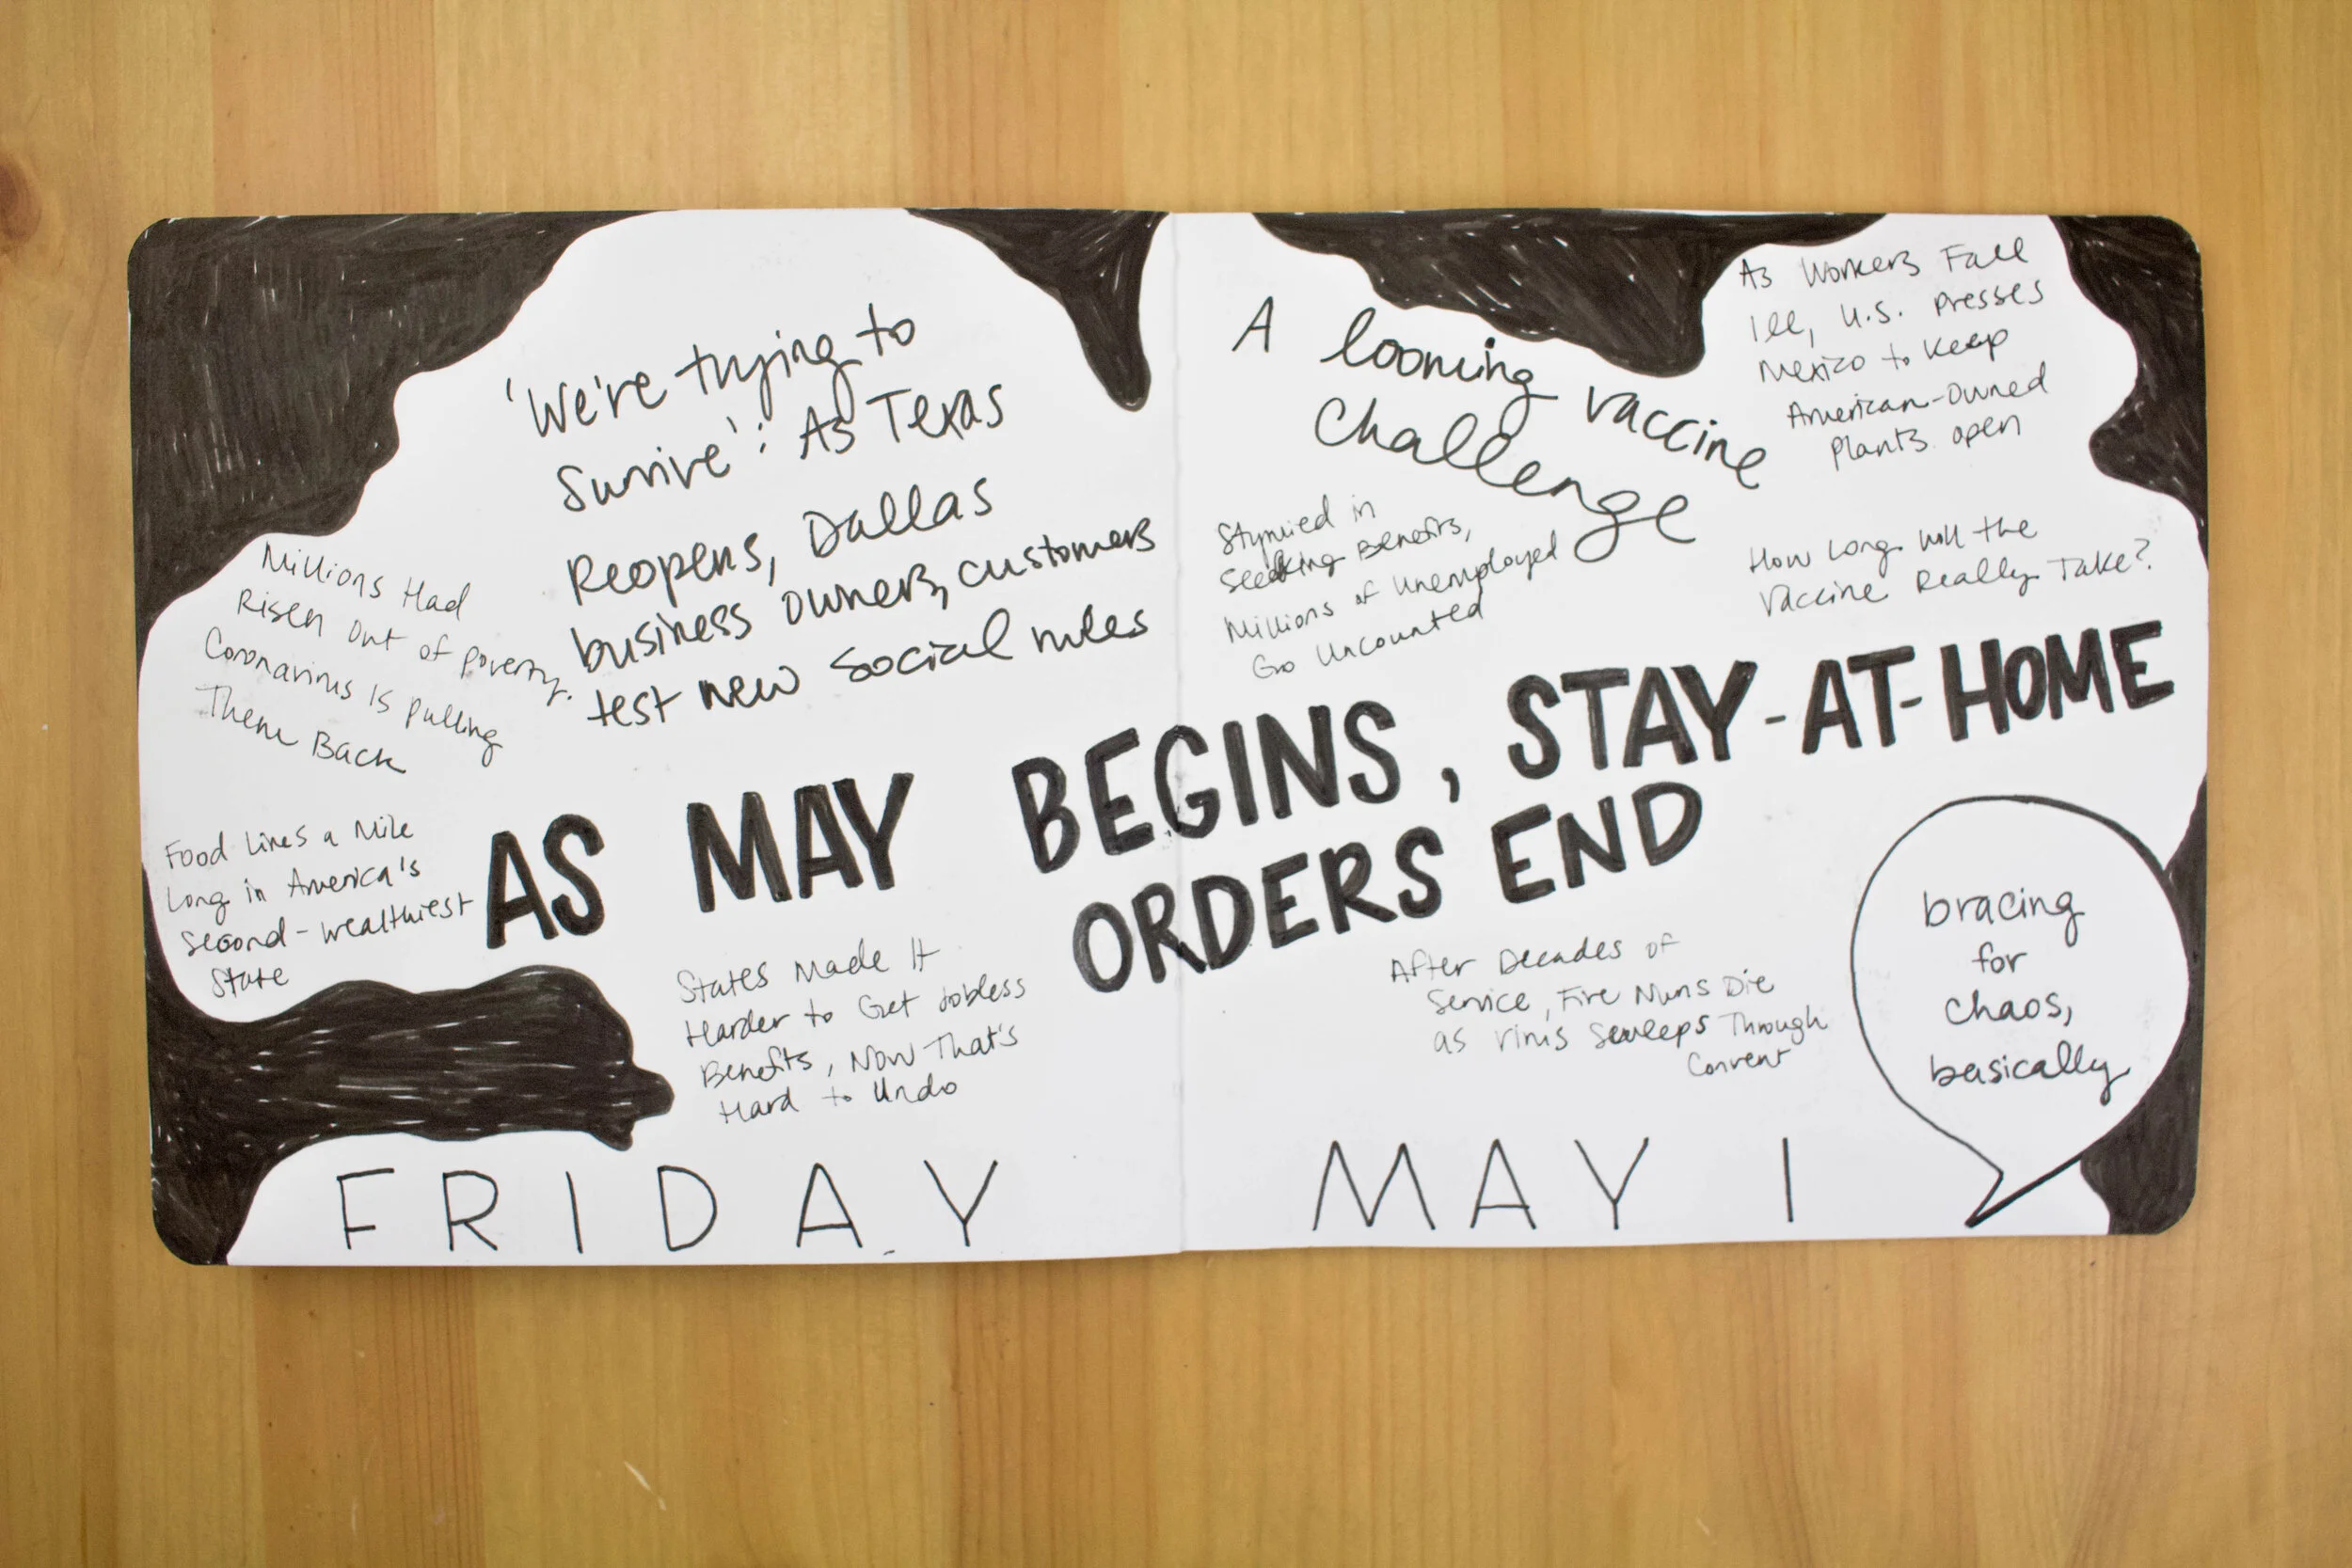 'We're trying to
Survive': As Texas
Reopens, Dallas
business owners, customers
test new social rules
Millions Had
Risen Out of Poverty.
Coronavirus Is Pulling
Them Back
Food Lines a Mile
Long in America's
Second-wealthiest
State
A looming vaccine
Challenge
As Workers Fall
Ill, U.S. Presses
Mexico to Keep
American-Owned
Plants Open
Stymied in
Seeking Benefits,
Millions of Unemployed
Go Uncounted
How Long Will the
Vaccine Really Take?
AS MAY BEGINS, STAY-AT-HOME
ORDERS END
States Made It
Harder to Get Jobless
Benefits, Now That's
Hard to Undo
After Decades of
Service, Five Nuns Die
as Virus Sweeps Through
Convent
bracing
for
chaos,
basically
FRIDAY MAY 1